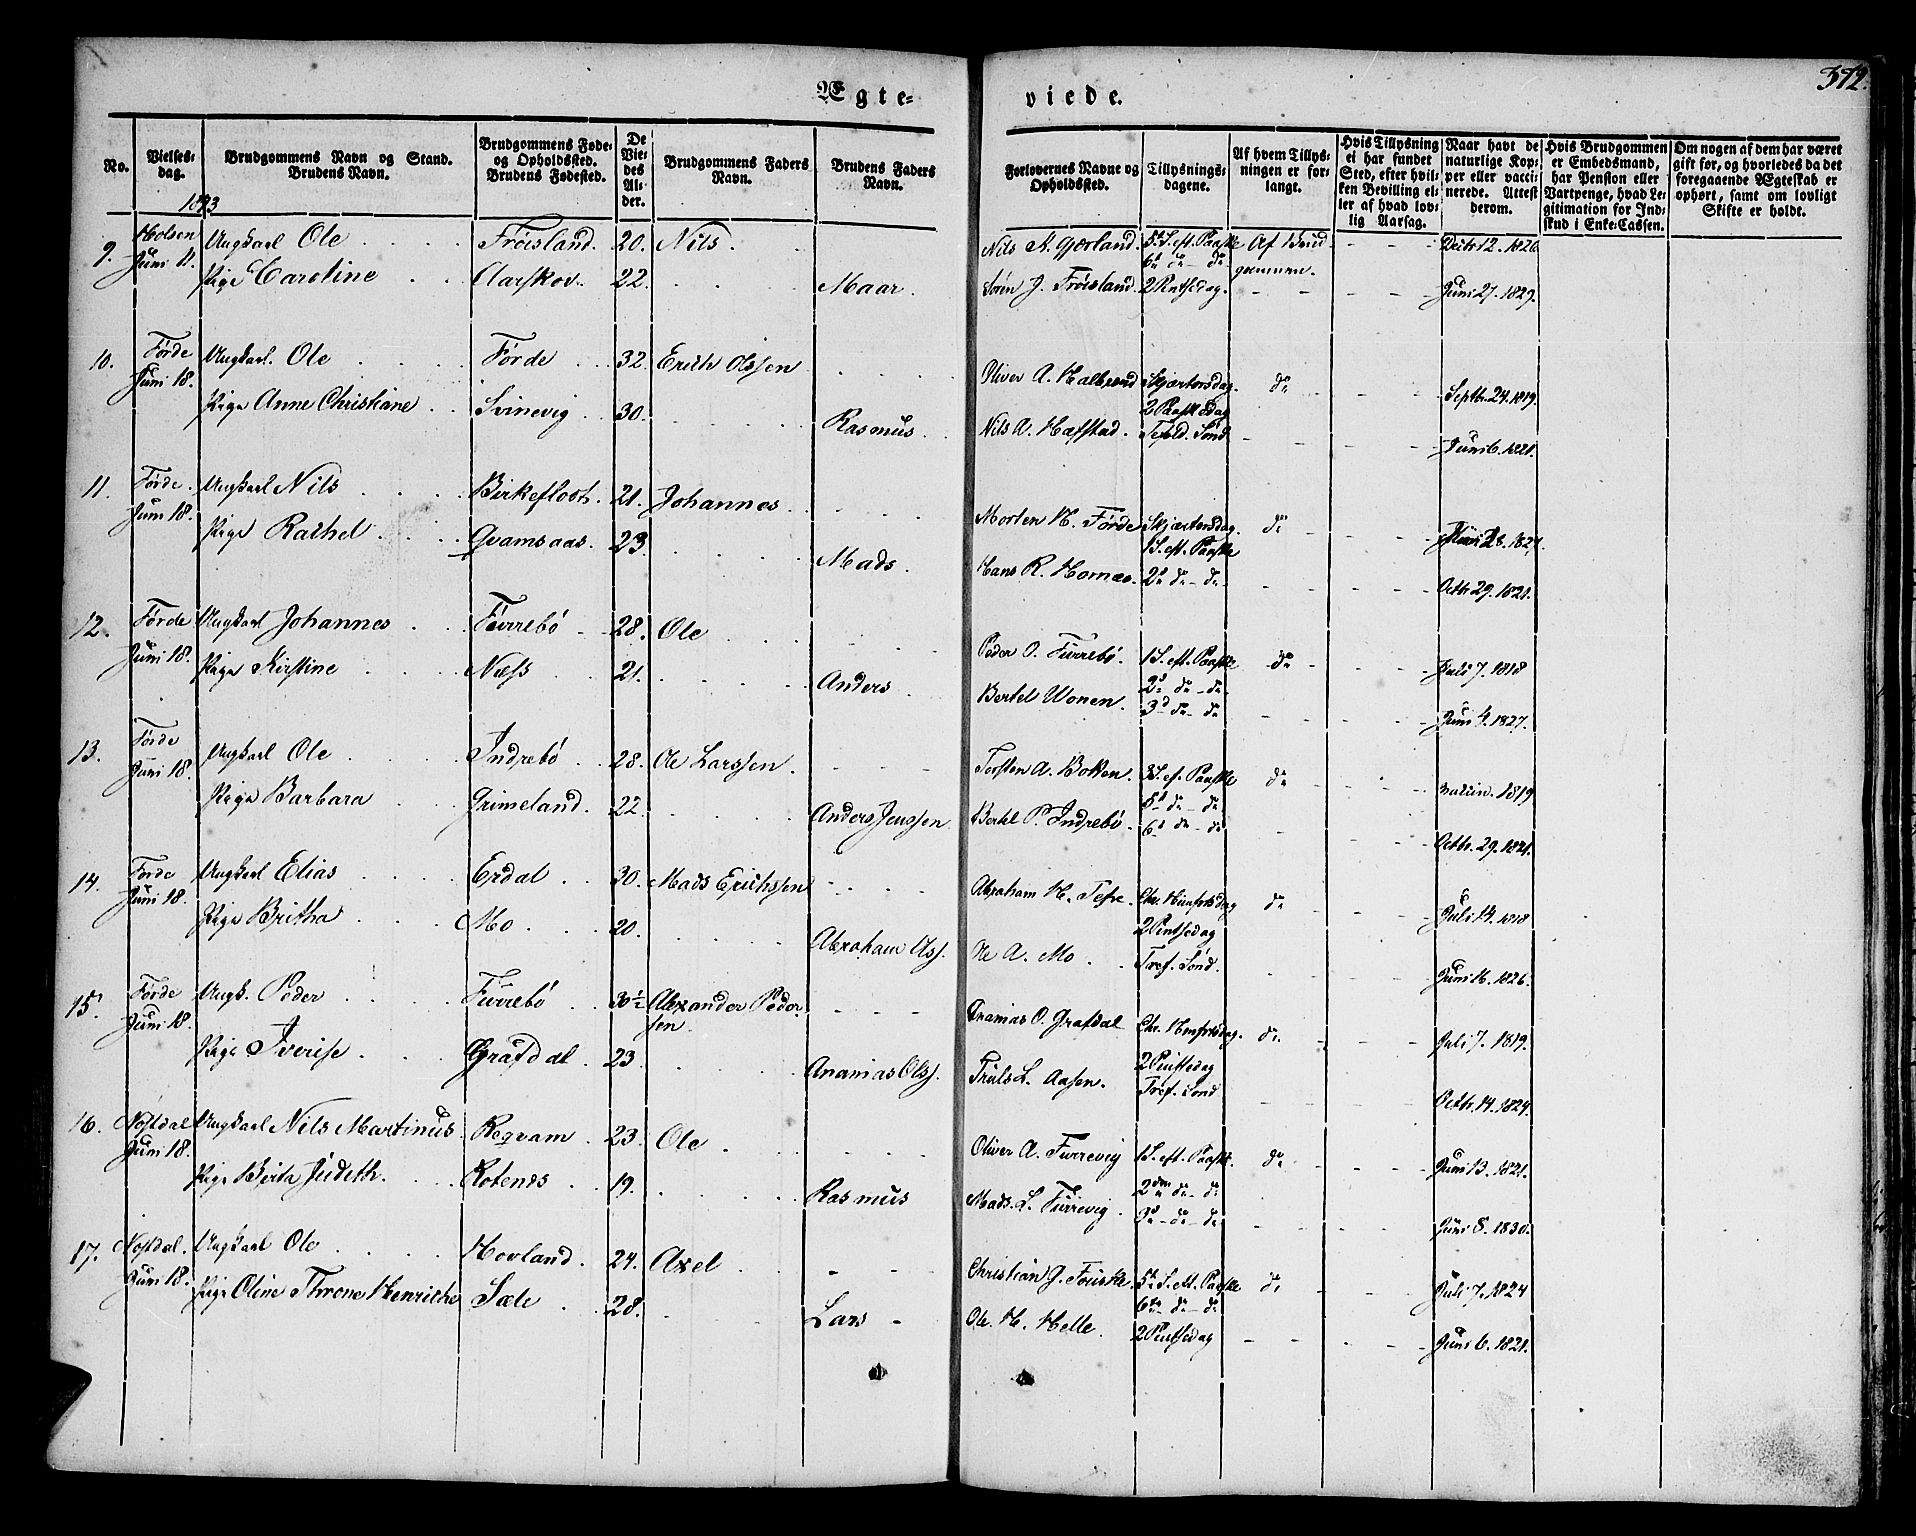 372.
Ægte=
viede.
No.
Vielses=
dag.
1843
Brudgommens Navn og Stand.
Brudens Navn.
Brudgommens Føde=
og Opholdssted.
Brudens Fødested.
De
Vie=
des
Al=
der.
Brudgommens Faders
Navn.
Brudens Faders
Navn.
Forlovernes Navne og
Opholdssted.
Tillysnings=
dagene.
Af hvem Tillys=
ningen er for=
langt.
Hvis Tillysning
ei har fundet
Sted, efter hvil=
ken Bevilling el=
ler af hvad lov=
lig Aarsag.
Naar havt de
naturlige Kop=
per eller vacci=
nerede. Attest
derom.
Hvis Brudgommen
er Embedsmand,
har Pension eller
Vartpenge, hvad Le=
gitimation for Ind=
skud i Enke=Cassen.
Om nogen af dem har været
gift før, og hvorledes da det
foregaaende Ægteskab er
ophørt, samt om lovligt
Skifte er holdt.
9. Holsen Juni 11. Ungkarl Ole Frøisland 20. Nils. Nils A. Gjørland. 5te S. eft. Paaske Af Brud- Decbr 12. 1826
6te do - do gommen.
Pige Caroline Aarskov. 22. Maar. Søren J. Frøisland. 2 Pintsedag. Juni 27. 1829.
10. Førde Juni 18. Ungkarl. Ole Førde 32. Erich Olssen Oliver A. Halbrend Skjærtorsdag. do Septbr. 24. 1819.
2 Paaskedag
Pige Anne Christiane Svinevig 30. Rasmus Nils A. Hafstad. Juni 6. 1821.
11. Førde. Juni 18. Ungkarl Nils Birkeflodt. 21. Johannes Morten N. Førde Skjærtorsdag. do 1821.
1 S. eft. Paaske
Pige Rachel Qvamsaas. 23. Mads. Hans R. Hornæs. 2d do - do Octbr 29. 1821.
12. Førde Juni 18. Ungkarl Johannes Furrebø 28. Ole Peder O. Furrebø. 1 S. eft. Paaske do Juli 7. 1818
2d do - do
Pige Kirstine Næss 21. Anders Bertel Wonen. 3d do - do Juni 4. 1827.
13. Førde Juni 18. Ungkarl Ole Indrebø 28. Ole Larssen. Torsten A. Botten. 3 S. ef. Paaske do 1819
5d do - do
Pige Barbara Grimeland. 22. Anders Jenssen Bertel P. Indrebø. 6d do - do Octbr. 29. 1821.
14. Førde Juni 18. Ungkarl Elias Erdal 30. Mads Erichssen Abraham H. Tefre. Chr. Himfrtsdag do Juli 14. 1818
2 Pintsedag
Pige Britha Mo 20. Abraham Olss. Ole A. Mo Tref. Sønd. Juni 16. 1826.
15. Førde Juni 18. Ungk. Peder Furrebø 30½ Alexander Peder-
sen. Ananias O. Grafdal Chr. Himfrtsdag. do Juli 7. 1819.
2 Pintsedag
Pige Iverise Grafdal 23. Ananias Olss. Truls L. Aasen. Tref. Sønd Octbr. 14. 1824.
16. Nostdal Juni 18. Ungkarl Nils Martinus Reqvam 23. Ole Oliver A. Furrevig 1 S. eft. Paaske. do Juni 13. 1821.
2den do - do
Pige Berta Judeth. Rotenes 19. Rasmus Mads. L. Furrevig 3d - do - do Juni 8. 1830.
17. Nostdal. Juni 18. Ungkarl Ole Hovland. 24. Axel Christian J. 5te S. eft. Paaske do Juli 7. 1824
6te do - do
Pige Oline Throne Henriche Sæle 28. Lars Ole. H. Helle. 2 Pintsedag Juni 6. 1821.